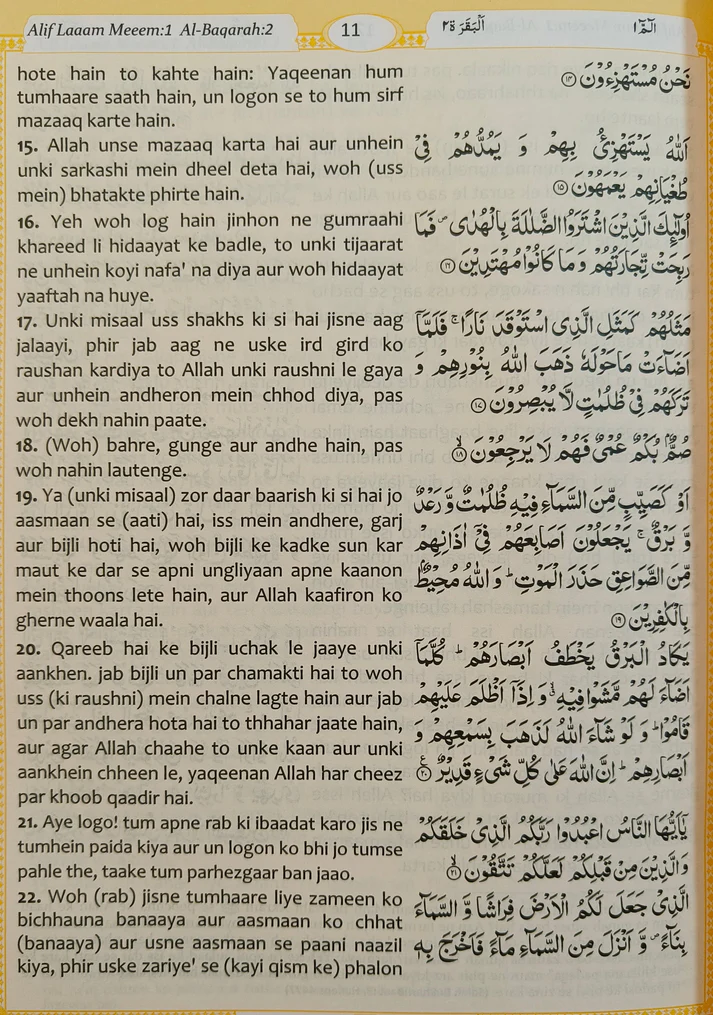 Alif Laaam Meeem:1 Al-Baqarah:2
11
اَلْبَقَرَة ٢
الٓمّٓ ١
hote hain to kahte hain: Yaqeenan hum
tumhaare saath hain, un logon se to hum sirf
mazaaq karte hain.
15. Allah unse mazaaq karta hai aur unhein
unki sarkashi mein dheel deta hai, woh (uss
mein) bhatakte phirte hain.
16. Yeh woh log hain jinhon ne gumraahi
khareed li hidaayat ke badle, to unki tijaarat
ne unhein koyi nafa' na diya aur woh hidaayat
yaaftah na huye.
17. Unki misaal uss shakhs ki si hai jisne aag
jalaayi, phir jab aag ne uske ird gird ko
raushan kardiya to Allah unki raushni le gaya
aur unhein andheron mein chhod diya, pas
woh dekh nahin paate.
18. (Woh) bahre, gunge aur andhe hain, pas
woh nahin lautenge.
19. Ya (unki misaal) zor daar baarish ki si hai jo
aasmaan se (aati) hai, iss mein andhere, garj
aur bijli hoti hai, woh bijli ke kadke sun kar
maut ke dar se apni ungliyaan apne kaanon
mein thoons lete hain, aur Allah kaafiron ko
gherne waala hai.
20. Qareeb hai ke bijli uchak le jaaye unki
aankhen. jab bijli un par chamakti hai to woh
uss (ki raushni) mein chalne lagte hain aur jab
un par andhera hota hai to thhahar jaate hain,
aur agar Allah chaahe to unke kaan aur unki
aankhein chheen le, yaqeenan Allah har cheez
par khoob qaadir hai.
21. Aye logo! tum apne rab ki ibaadat karo jis ne
tumhein paida kiya aur un logon ko bhi jo tumse
pahle the, taake tum parhezgaar ban jaao.
22. Woh (rab) jisne tumhaare liye zameen ko
bichhauna banaaya aur aasmaan ko chhat
(banaaya) aur usne aasmaan se paani naazil
kiya, phir uske zariye' se (kayi qism ke) phalon
نَحْنُ مُسْتَهْزِءُوْنَ ۝١٤
اَللّٰهُ يَسْتَهْزِئُ بِهِمْ وَ يَمُدُّهُمْ فِيْ
طُغْيَانِهِمْ يَعْمَهُوْنَ ۝١٥
اُولٰٓئِكَ الَّذِيْنَ اشْتَرَوُا الضَّلٰلَةَ بِالْهُدٰى ۖ فَمَا
رَبِحَتْ تِّجَارَتُهُمْ وَمَا كَانُوْا مُهْتَدِيْنَ ۝١٦
مَثَلُهُمْ كَمَثَلِ الَّذِي اسْتَوْقَدَ نَارًا ۚ فَلَمَّآ
اَضَآءَتْ مَاحَوْلَهٗ ذَهَبَ اللّٰهُ بِنُوْرِهِمْ وَ
تَرَكَهُمْ فِيْ ظُلُمٰتٍ لَّا يُبْصِرُوْنَ ۝١٧
صُمٌّۢ بُكْمٌ عُمْيٌ فَهُمْ لَا يَرْجِعُوْنَ ۝١٨
اَوْ كَصَيِّبٍ مِّنَ السَّمَآءِ فِيْهِ ظُلُمٰتٌ وَّ رَعْدٌ
وَّ بَرْقٌ ۚ يَجْعَلُوْنَ اَصَابِعَهُمْ فِيْٓ اٰذَانِهِمْ
مِّنَ الصَّوَاعِقِ حَذَرَ الْمَوْتِ ؕ وَ اللّٰهُ مُحِيْطٌۢ
بِالْكٰفِرِيْنَ ۝١٩
يَكَادُ الْبَرْقُ يَخْطَفُ اَبْصَارَهُمْ ؕ كُلَّمَآ
اَضَآءَ لَهُمْ مَّشَوْا فِيْهِ ۙ وَ اِذَآ اَظْلَمَ عَلَيْهِمْ
قَامُوْا ؕ وَ لَوْ شَآءَ اللّٰهُ لَذَهَبَ بِسَمْعِهِمْ وَ
اَبْصَارِهِمْ ؕ اِنَّ اللّٰهَ عَلٰى كُلِّ شَيْءٍ قَدِيْرٌ ۝٢٠
يٰٓاَيُّهَا النَّاسُ اعْبُدُوْا رَبَّكُمُ الَّذِيْ خَلَقَكُمْ
وَ الَّذِيْنَ مِنْ قَبْلِكُمْ لَعَلَّكُمْ تَتَّقُوْنَ ۝٢١
الَّذِيْ جَعَلَ لَكُمُ الْاَرْضَ فِرَاشًا وَّ السَّمَآءَ
بِنَآءً ۪ وَّ اَنْزَلَ مِنَ السَّمَآءِ مَآءً فَاَخْرَجَ بِهٖ